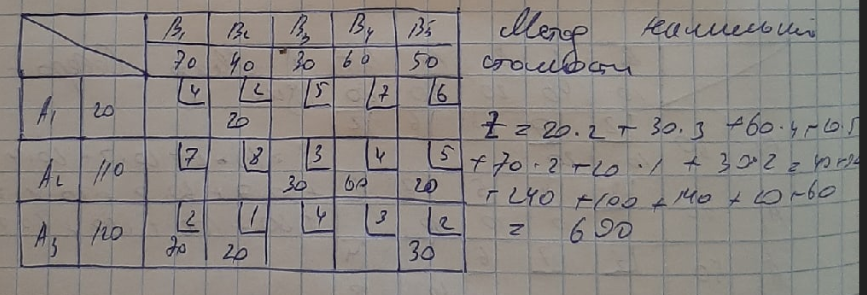 B1 B2 B3 B4 B5
70 40 30 60 50
A1 20 4 2 5 7 6
20
A2 110 7 8 3 4 5
30 60 20
A3 120 2 1 4 3 2
70 20 30
Метод наименьш
стоимости
Z = 20·2 + 30·3 + 60·4 + 20·5
+ 70·2 + 20·1 + 30·2 = 40+90
+ 240 + 100 + 140 + 20 + 60
= 690